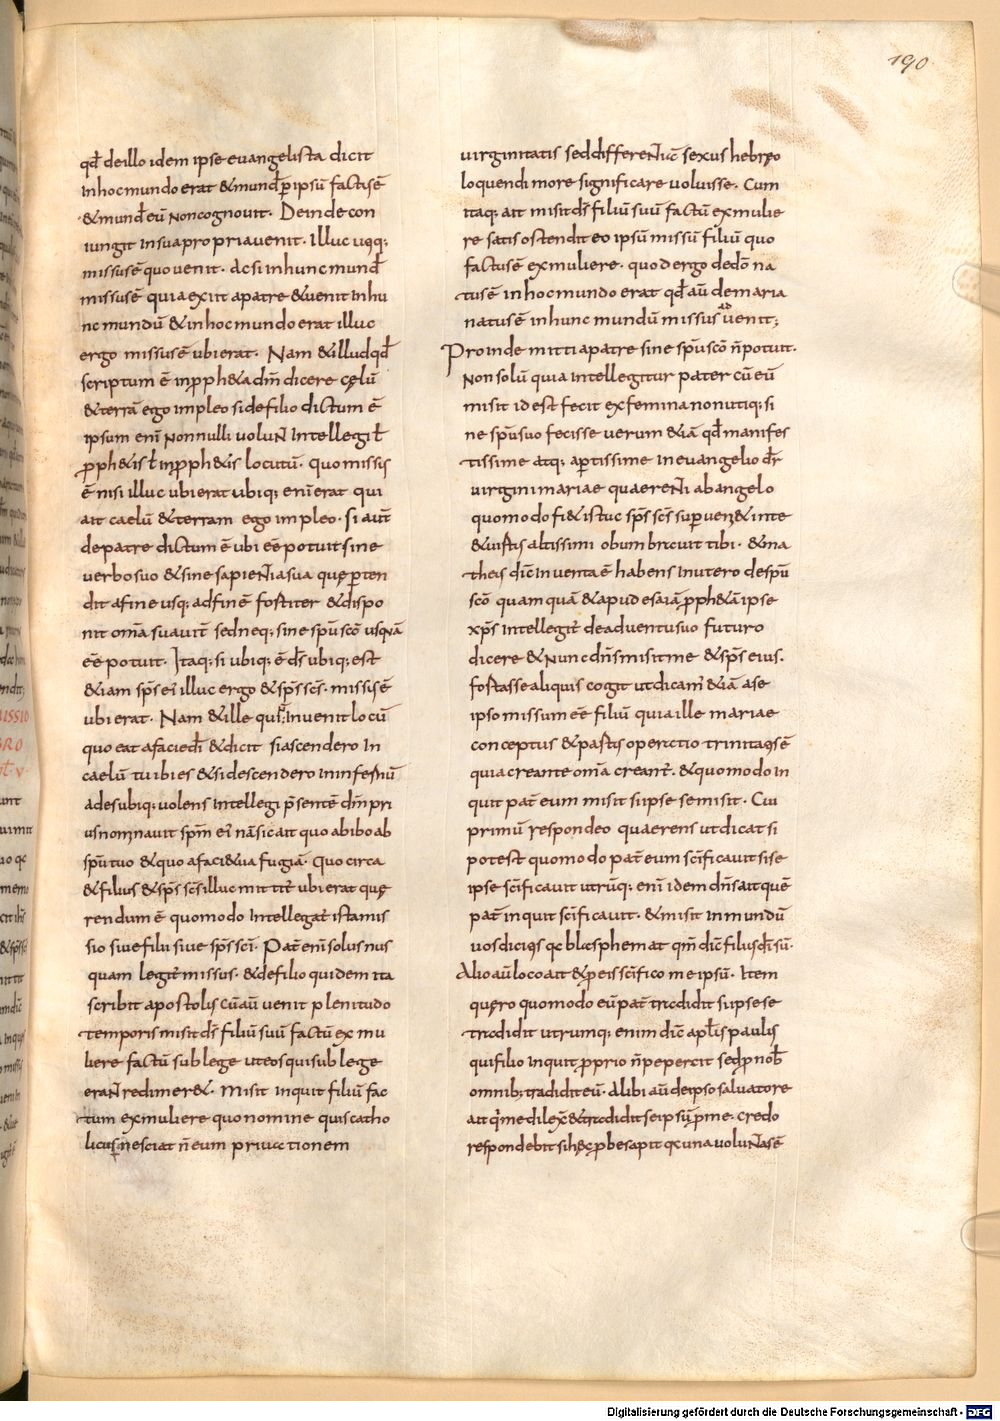 190
qd̄ deillo idem ipse euangelista dicit
inhocmundo erat &mund̄ p̄ipsū factusē
&mund̄ eū noncognouit. Deindecon
iungit insuapropriauenit. Illuc usq;
missusē quouenit. Acsi inhuncmund̄
missusē quiaexiit apatre &uenit inhu
nc mundū &inhocmundoerat illuc
ergo missusē ubierat. Nam &illudqd̄
scriptum ē inpph&a dn̄m dicere cęlū
&terrā ego impleo sidefilio dictum ē
ipsum enī nonnulli uolunt intellegi ł
p̄ph&is ł inp̄ph&is locutū. quo missus
ē nisi illuc ubierat ubiq; enī erat qui
ait caelū &terram ego impleo. si aut̄
depatre dictum ē ubi eē potuit sine
uerbosuo &sine sapientiasua quę p̄ten
dit afine usq; adfinē fortiter &dispo
nit omīa suauit̄ sedneq; sine sp̄u scō usquā
eē potuit. Itaq; si ubiq; ē ds̄ ubiq; est
&iam sp̄s eī illuc ergo &sp̄s scs̄. missusē
ubierat. Nam &ille qui inuenit locū
quo eat afaciedī &dicit siascendero in
caelū tu ibi es &sidescendero ininfernū
ades ubiq; uolens intellegi p̄sentē dn̄m pri
us nominauit sp̄m eī nā sicait quo abibo ab
sp̄u tuo &quo afaci&ua fugiā. Quo circa
&filius &sp̄s scs̄ illuc mittit̄ ubierat quę
rendum ē quomodo intellegat̄ istamis
sio siue filii siue sp̄s scī. Pat̄ enī solus nus
quam legit̄ missus. &defilio quidem ita
scribit apostolus Cūaū uenit plenitudo
temporis misit ds̄ filiū suū factū ex mu
liere factū sub lege uteos quisub lege
erant redimer&. Misit inquit filiū fac
tum exmuliere quo nomine quis catho
licus nesciat n̄ eum priuationem
uirginitatis seddifferentiā sexus hebręo
loquendi more significare uoluisse. Cum
itaq; ait misit ds̄ filiū suū factū exmulie
re satis ostendit eo ipsū missū filiū quo
factusē exmuliere. quod ergo dedō na
tusē inhocmundo erat qd̄ aū demaria
natusē inhunc mundū missus aduenit;
Proinde mitti apatre sine sp̄u scō n̄ potuit.
Non solū quia intellegitur pater cū eū
misit id est fecit exfemina non utiq; si
ne sp̄u suo fecisse uerum &iā qd̄ manifes
tissime atq; ap̄tissime ineuangelio dr̄
uirgini mariae quaerenti abangelo
quomodo fi& istuc sp̄s scs̄ sup̄ueni& inte
&uirtus altissimi obumbrauit tibi. &ma
theus dic̄ Inuenta ē habens inutero despū
scō quamquā &apud esaiā p̄ph&ā ipse
xp̄s intellegit̄ deaduentusuo futuro
dicere &nunc dn̄s misit me &sp̄s eius.
fortasse aliquis cogit ut dicam̄ &iā ase
ipso missum eē filiū quia ille mariae
conceptus &partus operatio trinitatisē
quia creante omīa creant̄. &quomodo in
quit pat̄ eum misit si ipse se misit. Cui
primū respondeo quaerens ut dicat si
potest quomodo pat̄ eum scīficauit si se
ipse scīficauit utrūq; enī idem dn̄s ait quē
pat̄ inquit scīficauit. &misit inmundū
uos dicitis qa blasphemat qm̄ dic̄ filius dī sū.
Alio aū loco ait &p̄ eis scīfico me ipsū. Item
quęro quomodo eū pat̄ tradidit si ipse se
tradidit utrumq; enim dic̄ apl̄s paulus
quifilio inquit p̄prio n̄ pepercit sed p̄nob̄
omnib; tradidit eū. Alibi aū deipso saluatore
ait q̄ me dilex̄ &tradidit se ipsū p̄ me. credo
respondebit si hęc p̄be sapit qa una uoluntas ē
Digitalisierung gefördert durch die Deutsche Forschungsgemeinschaft - DFG